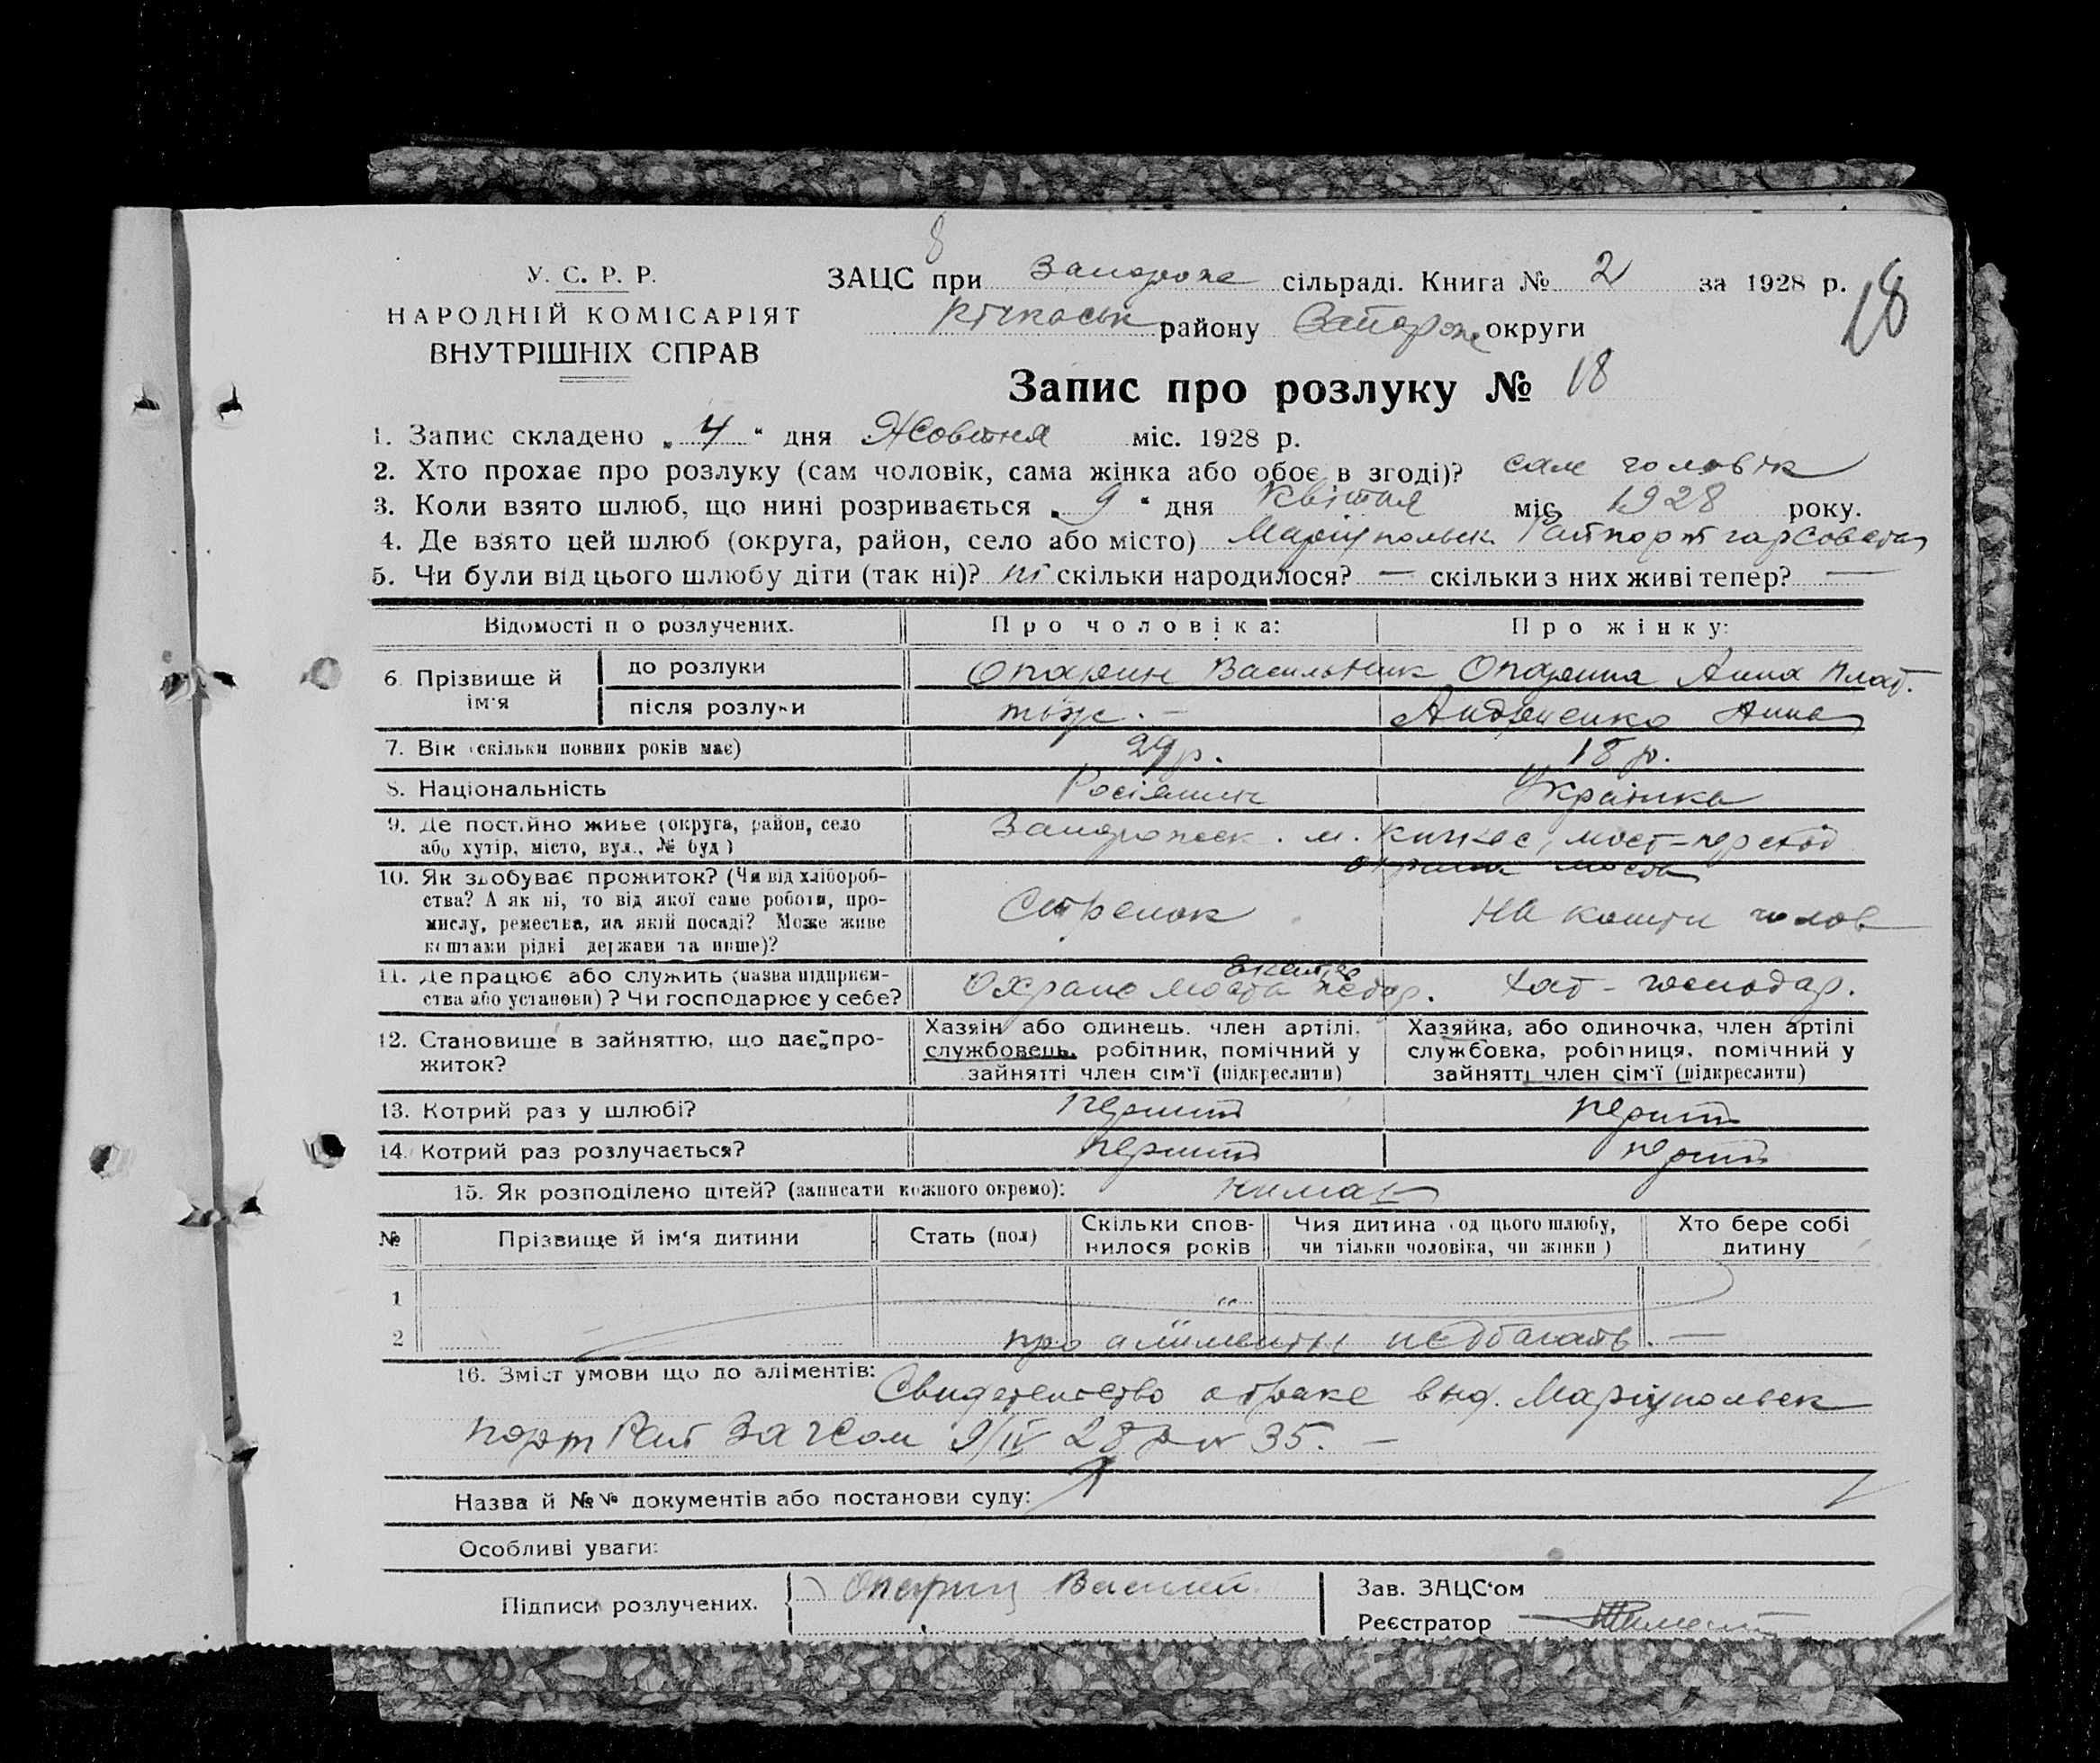 8
У. С. Р. Р.
НАРОДНІЙ КОМІСАРІЯТ
ВНУТРІШНІХ СПРАВ
ЗАЦС при Запорож сільраді. Книга № 2 за 1928 р.
18
Кічкаськ району Запорож округи
Запис про розлуку № 18
1. Запис складено „ 4 “ дня Жовтня міс. 1928 р.
2. Хто прохає про розлуку (сам чоловік, сама жінка або обоє в згоді)? сам чоловік
3. Коли взято шлюб, що нині розривається „ 9 “ дня Квітня міс. 1928 року.
4. Де взято цей шлюб (округа, район, село або місто) Маріупольск.
5. Чи були від цього шлюбу діти (так ні)? ні скільки народилося? — скільки з них живі тепер? —
Відомості по розлучених. Про чоловіка: Про жінку:
6. Прізвище й ім'я
до розлуки Опарин Опарина Анна
після розлуки тож. — Андрієнко Анна
7. Вік (скільки повних років має) 29 р. 18 р.
8. Національність Росіянин Українка
9. Де постійно живе (округа, район, село або хутір, місто, вул., № буд.) Запорожск. м. Кичкас,
10. Як здобуває прожиток? (Чи від хлібороб-
ства? А як ні, то від якої саме роботи, про-
мислу, ремества, на якій посаді? Може живе
коштами рідні держави та инше)? Стрелок На кошти чолов
11. Де працює або служить (назва підприєм-
ства або установи)? Чи господарює у себе? Охрана моста хат-господар.
12. Становище в зайняттю, що дає про-
житок?
Хазяїн або одинець, член артілі,
службовець, робітник, помічний у
зайнятті член сім'ї (підкреслити)
Хазяйка, або одиночка, член артілі
службовка, робітниця, помічний у
зайнятті член сім'ї (підкреслити)
13. Котрий раз у шлюбі? перший перший
14. Котрий раз розлучається? перший перший
15. Як розподілено дітей? (записати кожного окремо): немає
№ Прізвище й ім'я дитини Стать (пол) Скільки спов-
нилося років Чия дитина (од цього шлюбу,
чи тільки чоловіка, чи жінки) Хто бере собі
дитину
1 "
2 про аліменти —
16. Зміст умови що до аліментів: Свидетельство о браке выд. Маріупольск
порт 9/IV 28 р № 35. —
Назва й №№ документів або постанови суду:
Особливі уваги:
Підписи розлучених. Опарин Василий
Зав. ЗАЦС'ом
Реєстратор